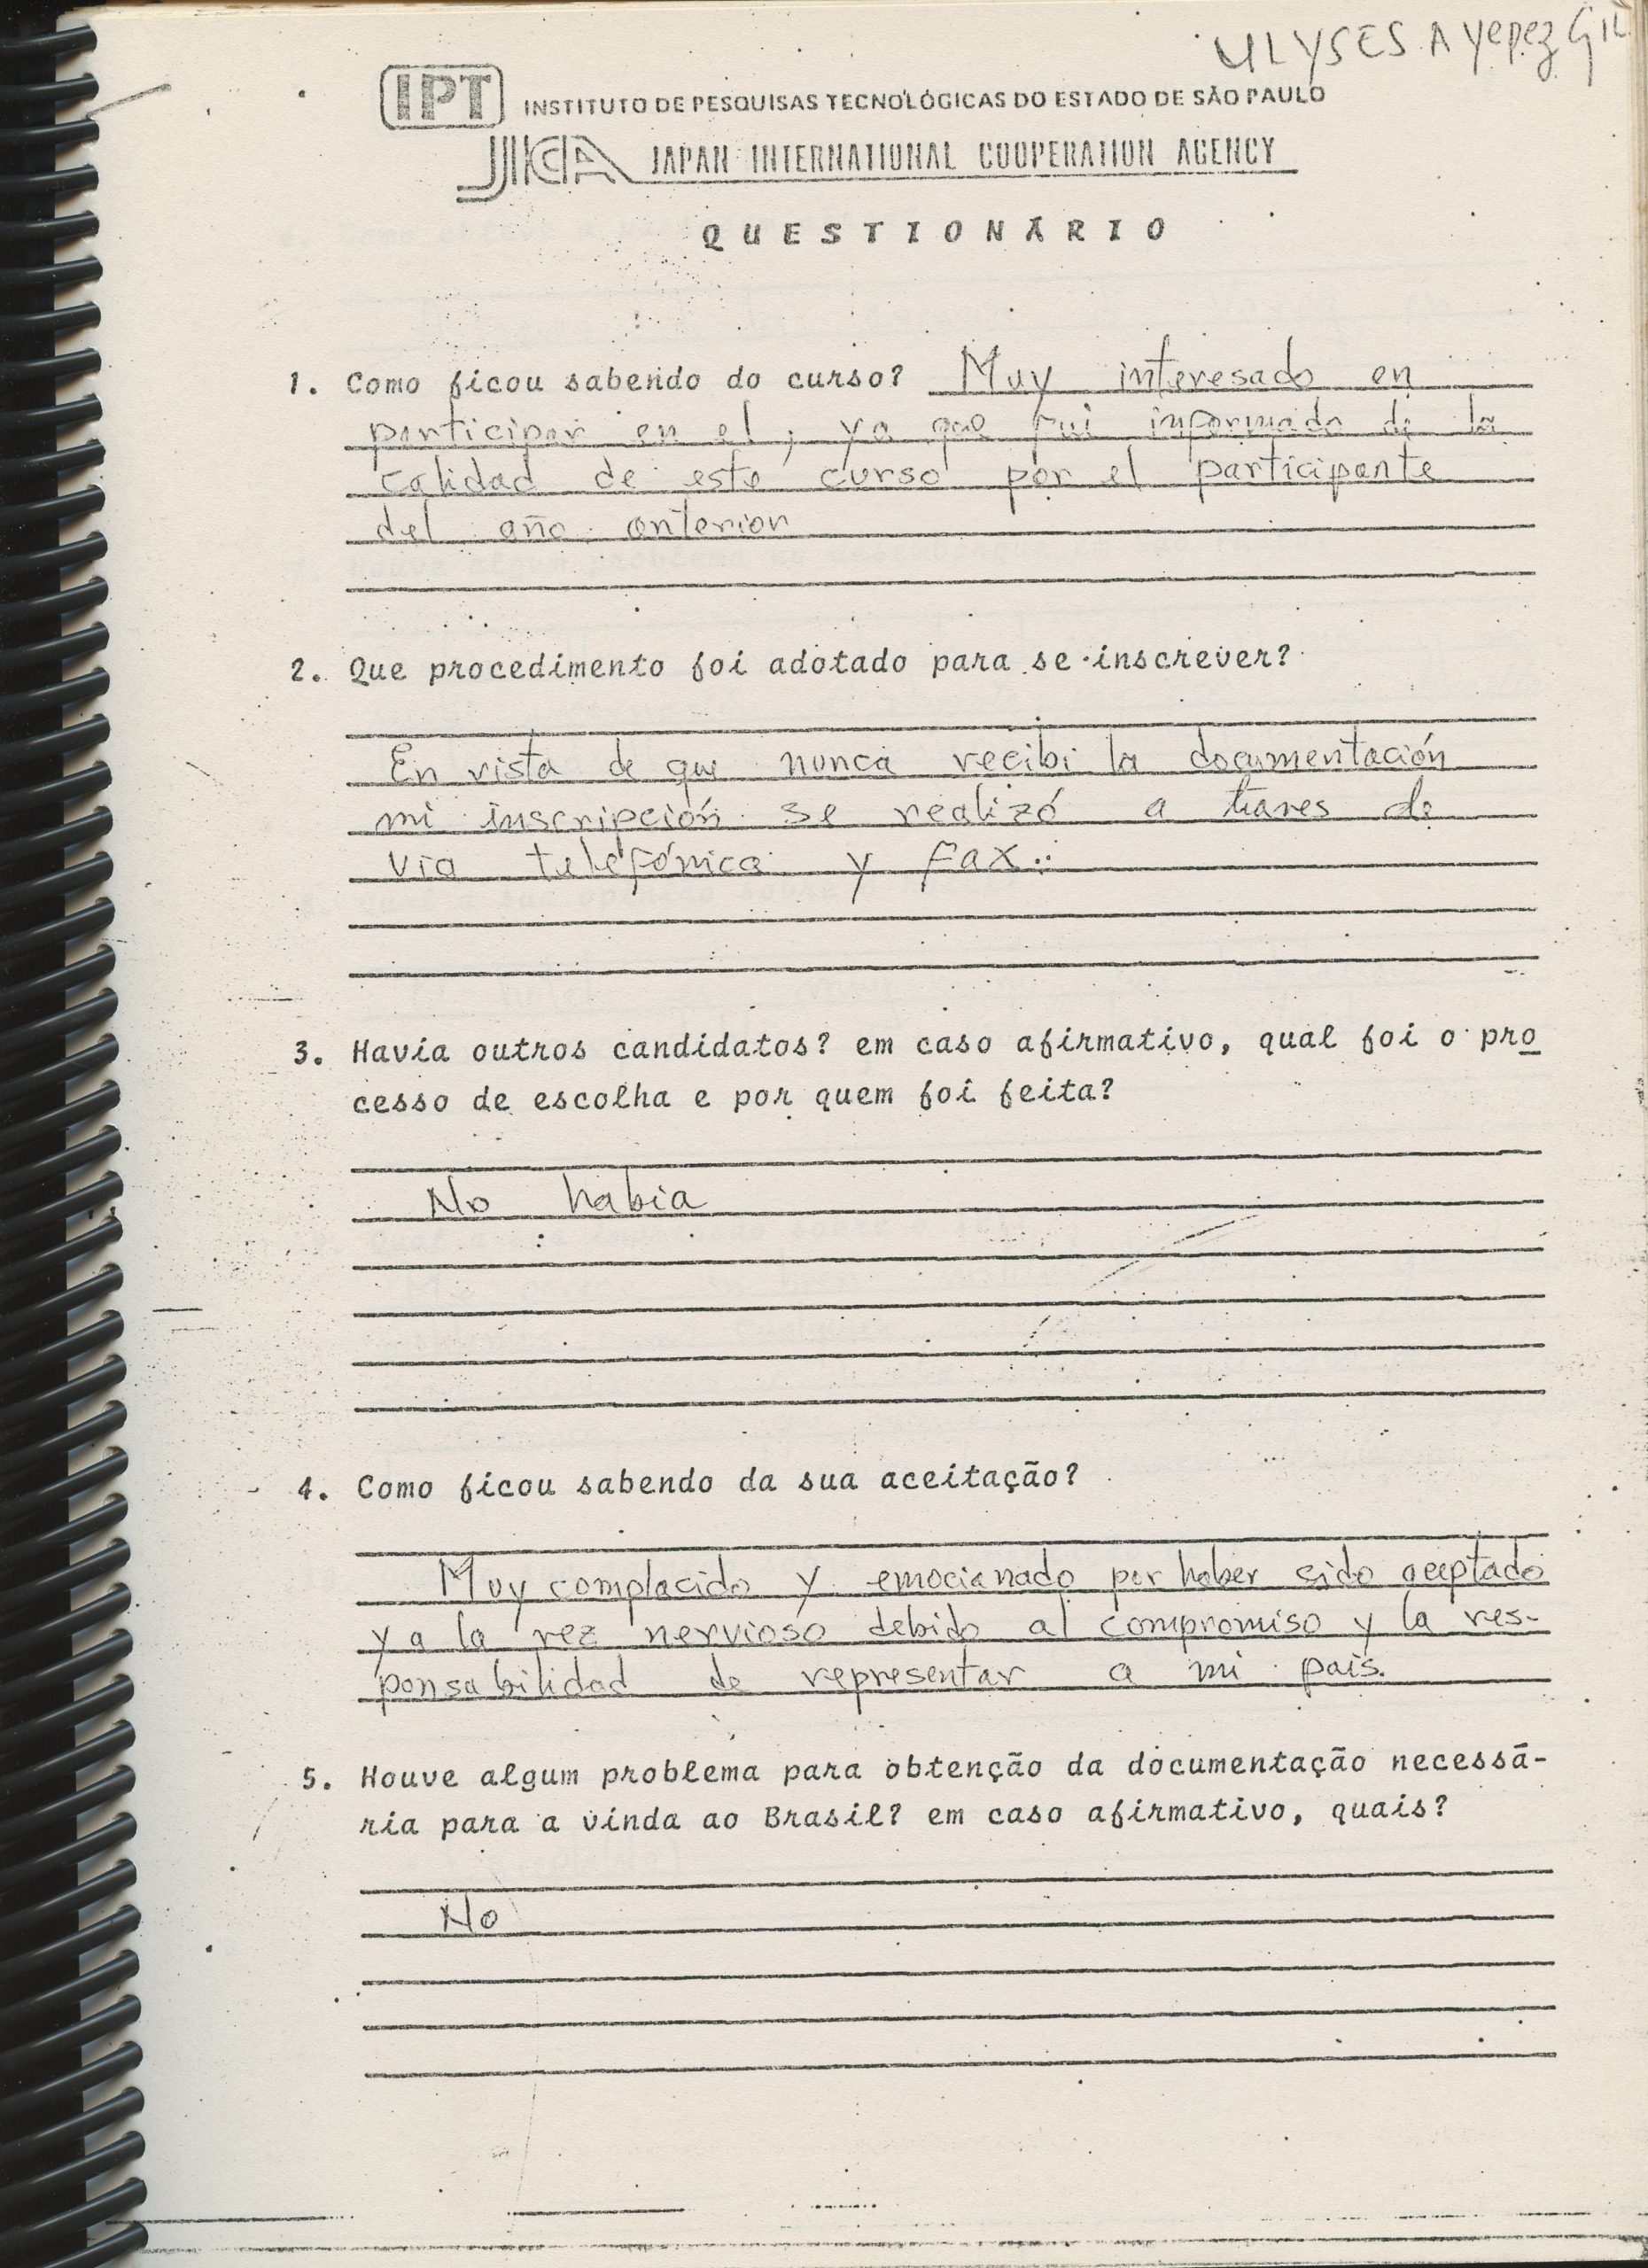 ULYSES A Yepez GIL
IPT INSTITUTO DE PESQUISAS TECNOLÓGICAS DO ESTADO DE SÃO PAULO
JICA JAPAN INTERNATIONAL COOPERATION AGENCY
QUESTIONÁRIO
1. Como ficou sabendo do curso? Muy interesado en
participar en el, ya que fui informado de la
calidad de este curso por el participante
del año anterior
2. Que procedimento foi adotado para se inscrever?
En vista de que nunca recibi la documentación
mi inscripción se realizó a traves de
via telefónica y fax.
3. Havia outros candidatos? em caso afirmativo, qual foi o pro
cesso de escolha e por quem foi feita?
No habia
4. Como ficou sabendo da sua aceitação?
Muy complacido y emocionado por haber sido aceptado
y a la vez nervioso debido al compromiso y la res-
ponsabilidad de representar a mi pais.
5. Houve algum problema para obtenção da documentação necessá-
ria para a vinda ao Brasil? em caso afirmativo, quais?
No